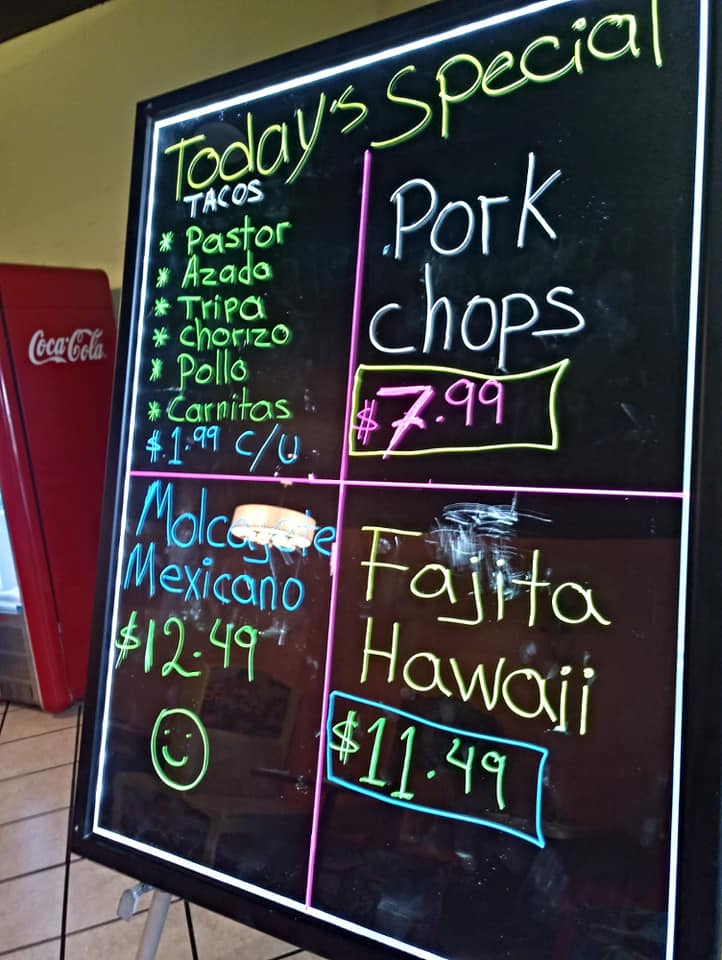 Today's Special
TACOS
* Pastor
* Azada
* Tripa
* chorizo
* Pollo
* Carnitas
$1.99 c/u
Pork
chops
$7.99
Molcajete
Mexicano
$12.49
Fajita
Hawaii
$11.49
Coca-Cola